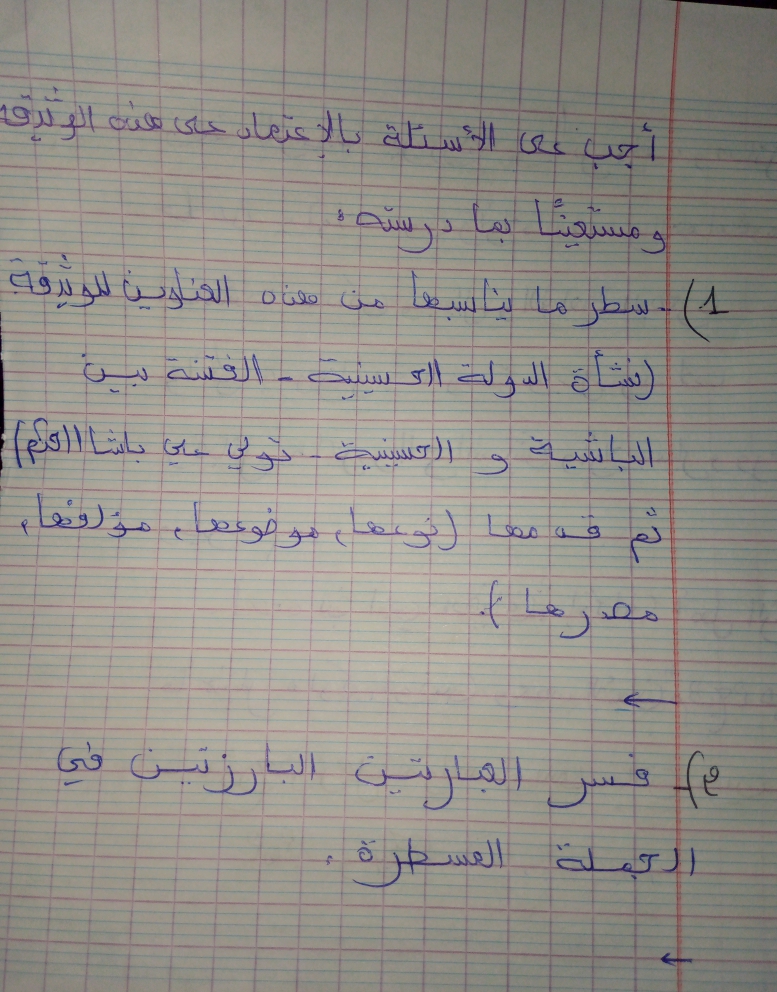 أجب على الأسئلة بالإعتماد على هذه الوثيقة
ومستعينًا بما درسته:
1)- سطر ما يناسبها من هذه العناوين للوثيقة
(نشأة الدولة الحسينية - الفتنة بين
الباشية و الحسينية - تولي علي باشا الحكم)
ثم قدمها (نوعها، موضوعها، مؤلفها،
مصدرها).
2)- فسر العبارتين البارزتين في
الجملة المسطرة.